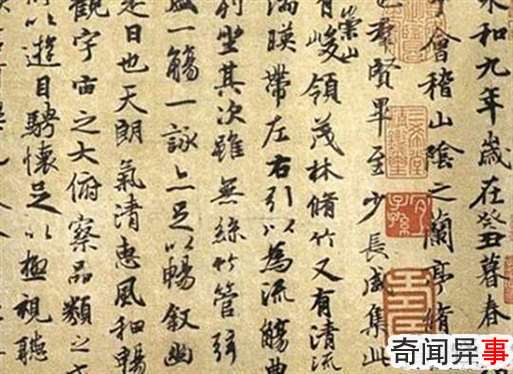 永和九年歲在癸丑暮春
會稽山陰之蘭亭脩
也羣賢畢至少長咸集此
有崇山峻領茂林脩竹又有清流
湍暎帶左右引以為流觴曲
列坐其次雖無絲竹管弦
盛一觴一詠亦足以暢敘幽
是日也天朗氣清惠風和暢
觀宇宙之大俯察品類之
以遊目騁懷足以極視聽
奇闻异事